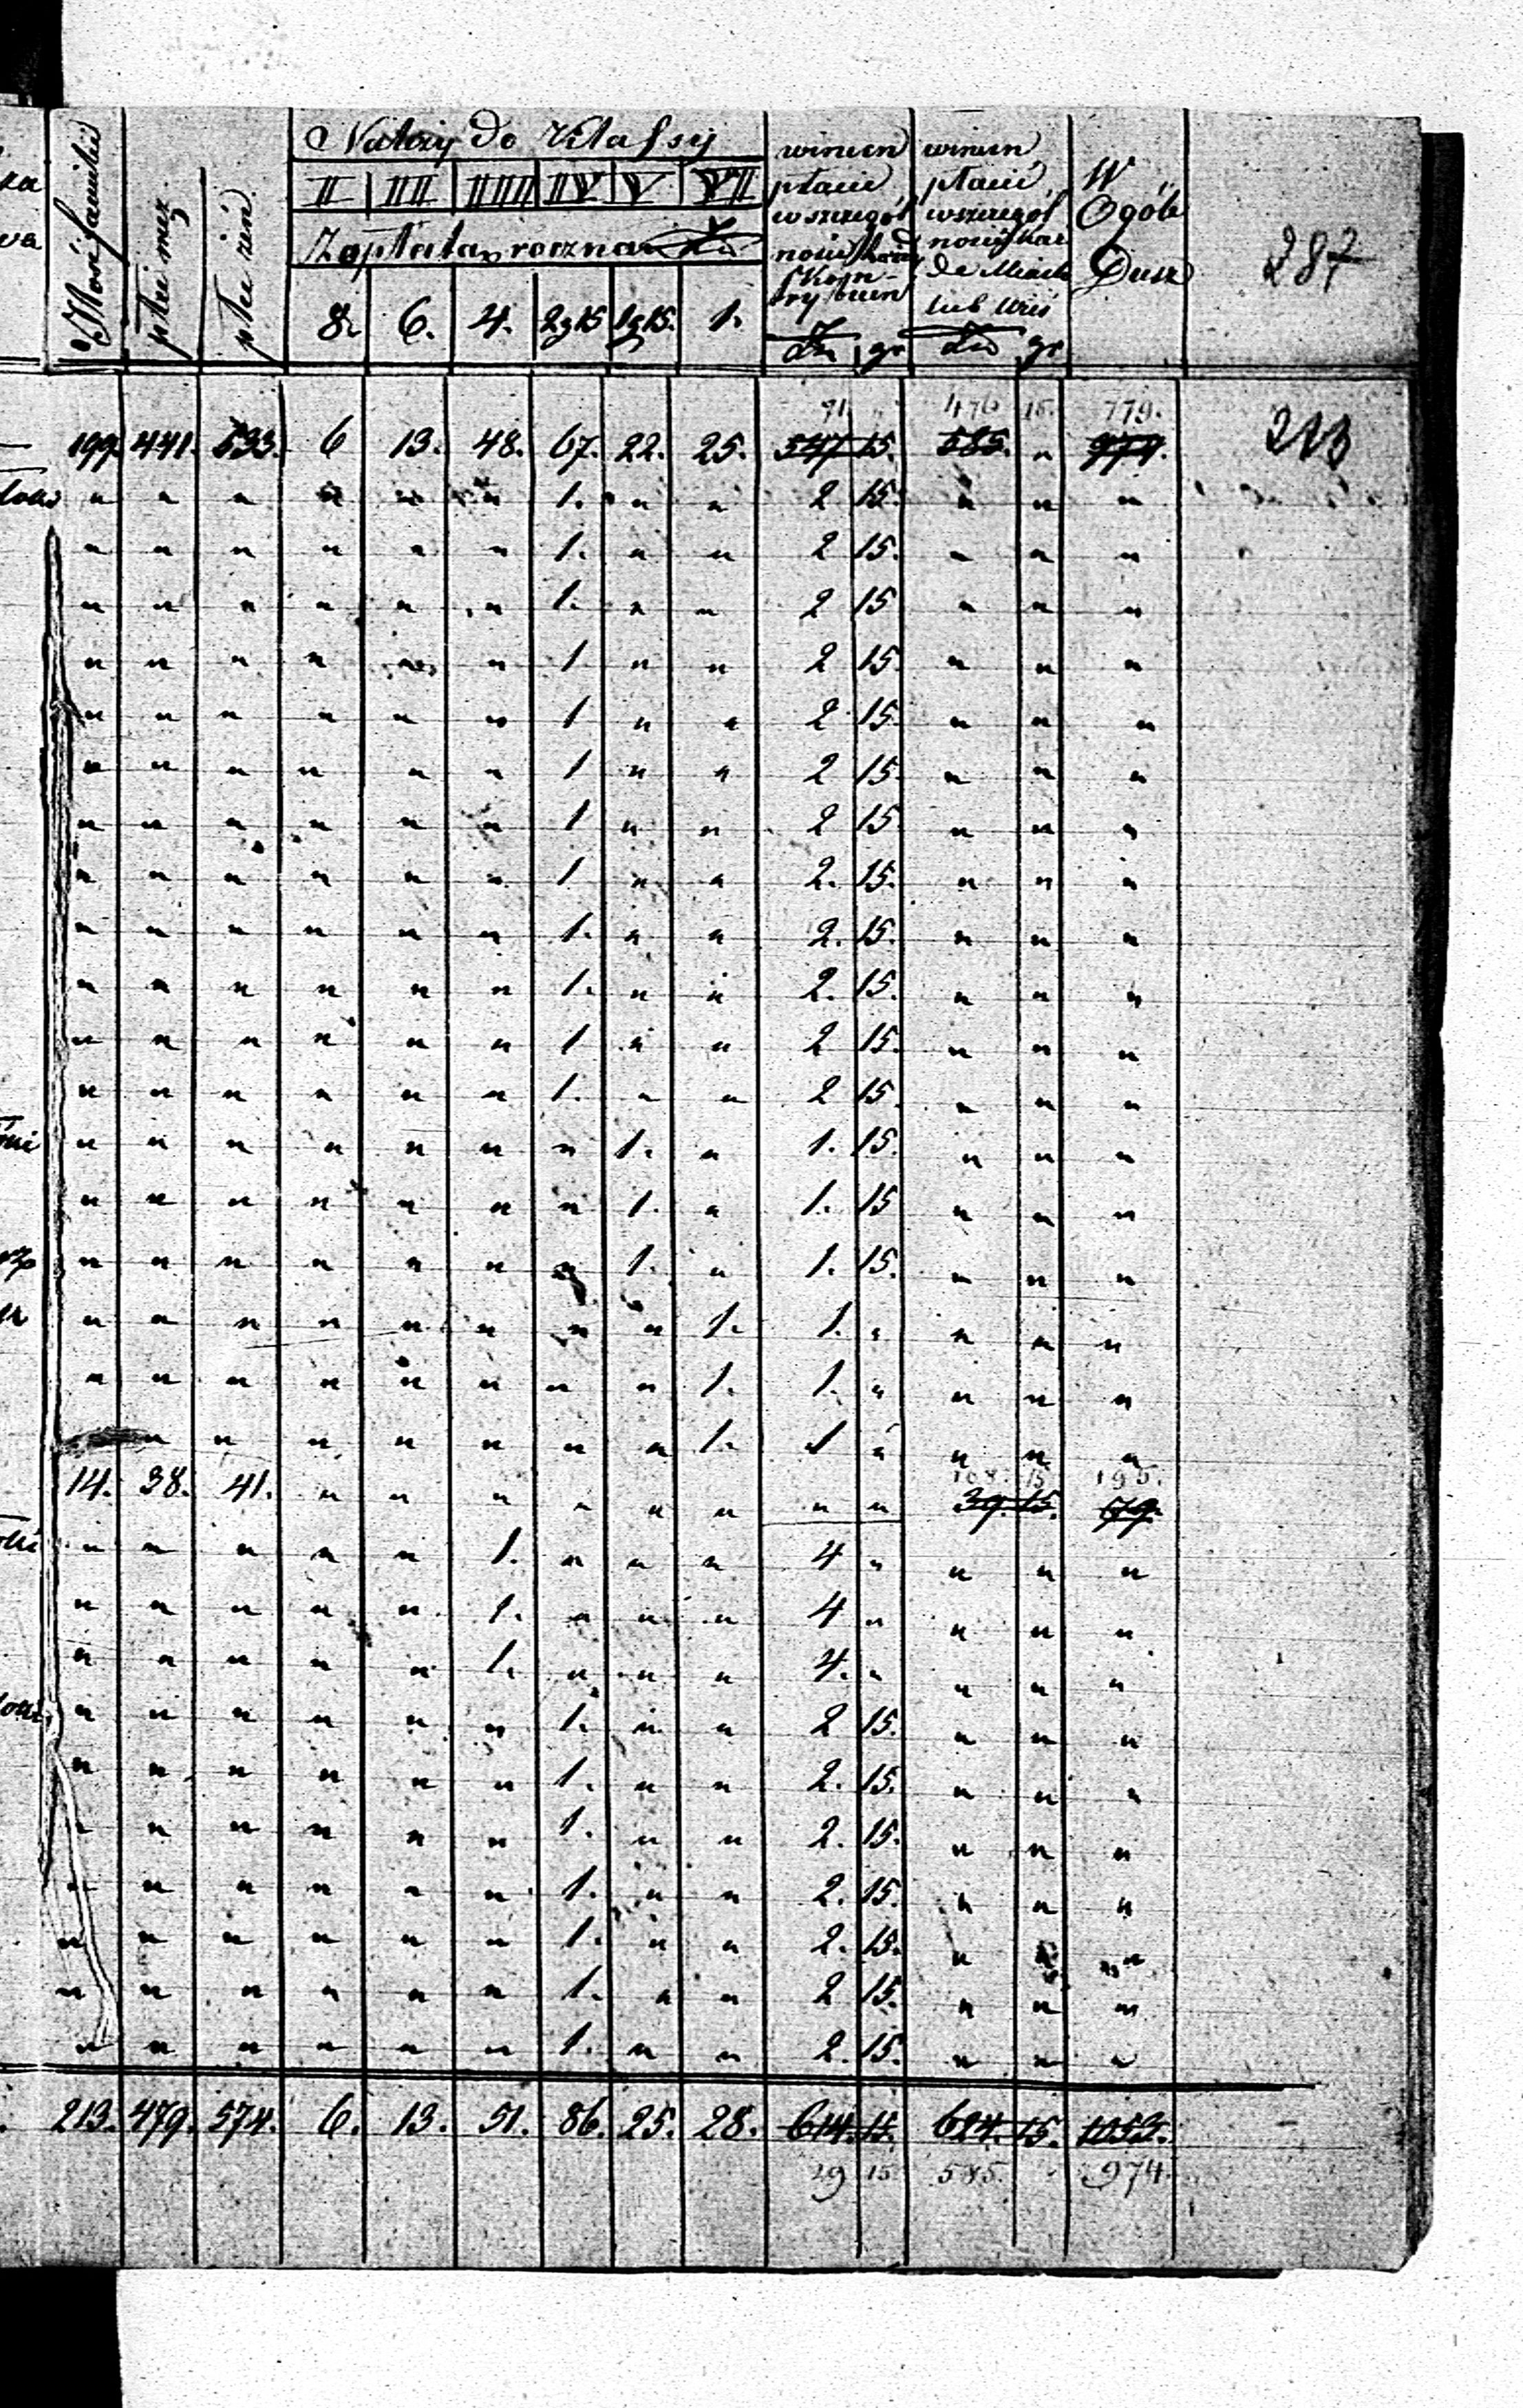 Ilość familii | płci męz. | płci żeń. | Należy do Klassy | winien płacić w szczegól ności każdy Kon- trybuen | winien płacić w szczegól ności każ de Miasto lub Wieś | W Ogóle Dusz | 287
II | III | IIII | IV | V | VII
Zapłata roczna Zło
8. | 6. | 4. | 2g15 | 1g15. | 1. | Zło | gr | Zło | gr
91 " | 476 15. | 779.
199. 441. 533. 6 13. 48. 67. 22. 25. 547 15. 585. " 974. 213
" " " " " " 1. " " 2 15. " " "
" " " " " " 1. " " 2 15. " " "
" " " " " " 1. " " 2 15 " " "
" " " " " " 1 " " 2 15. " " "
" " " " " " 1 " " 2 15. " " "
" " " " " " 1 " " 2 15. " " "
" " " " " " 1 " " 2 15. " " "
" " " " " " 1 " " 2. 15. " " "
" " " " " " 1. " " 2. 15. " " "
" " " " " " 1. " " 2. 15. " " "
" " " " " " 1 " " 2 15. " " "
" " " " " " 1. " " 2 15. " " "
" " " " " " " 1. " 1. 15. " " "
" " " " " " " 1. " 1. 15 " " "
" " " " " " " 1. " 1. 15. " " "
" " " " " " " " 1. 1. " " " "
" " " " " " " " 1. 1. " " " "
" " " " " " " 1. 1 " " " "
15. 195.
14. 38. 41. " " " " " " " " 39. 15. 79.
" " " " " 1. " " " 4 " " " "
" " " " " 1. " " " 4 " " " "
" " " " " 1. " " " 4. " " " "
" " " " " " 1. " " 2 15. " " "
" " " " " " 1. " " 2. 15. " " "
" " " " " " 1. " " 2. 15. " " "
" " " " " " 1. " " 2. 15. " " "
" " " " " " 1. " " 2. 15. " " "
" " " " " " 1. " " 2 15. " " "
" " " " " " 1. " " 2. 15. " " "
213. 479. 574. 6. 13. 51. 86. 25. 28. 614. 15. 624. 15. 1053. -
29 15 585. 974.